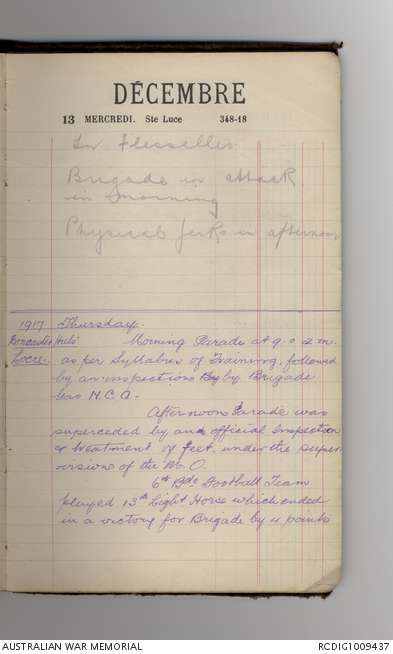 DÉCEMBRE
13 MERCREDI. Ste Luce 348-18
In Flesselles
Brigade in attack
in morning
Physical jerks in afternoon
1917 Thursday.
Doncaster Huts Morning Parade at 9.0 a.m.
Locre. as per Syllabus of Training, followed
by an inspection by Brigade
H.C.A.
Afternoon Parade was
superceded by an official Inspection
& treatment of feet, under the super-
visions of the M.O.
6th Bde Football Team
played 13th Light Horse which ended
in a victory for Brigade by 4 points
AUSTRALIAN WAR MEMORIAL
RCDIG1009437